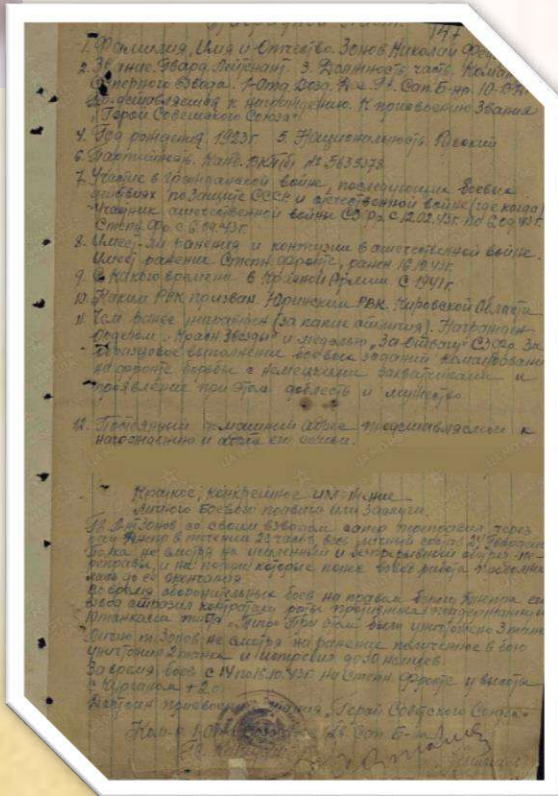 Наградной лист. 147
1. Фамилия, Имя и Отчество. Зонов Николай
2. Звание. Гвард. Лейтенант. 3. Должность, часть.
Саперного взвода.
Представляется к награждению. К присвоению Звания
"Герой Советского Союза"
4. Год рождения. 1923г 5. Национальность. Русский
6. Партийность. Канд. ВКП(б) № 5635373
7. Участие в гражданской войне, последующих боевых
действиях по защите СССР и отечественной войне (где когда)
Участник отечественной войны с 12.02.43г. по
с 6.09.43г.
8. Имеет ли ранения и контузии в отечественной войне.
Имеет ранение Степн. фронте, ранен 16.10.43г.
9. С какого времени в Красной Армии. С 1941г.
10. Каким РВК призван. РВК. Кировской Области
11. Чем ранее награжден (за какие отличия). Награжден
Орденом "Красн Звезды" и медалью "За Отвагу" За
образцовое выполнение боевых заданий командования
на фронте борьбы с немецкими захватчиками и
проявление при этом доблесть и мужество
12. Постоянный домашний адрес представляемого к
награждению и адрес его семьи.
Краткое, конкретное изложение
личного боевого подвига или заслуги.
Зонов со своим взводом переправил через
реку Днепр в течении 23 часов весь личный состав
полка не смотря на
переправы, и на потери которые понес взвод работа
до её окончания
Во время оборонительных боев на правом берегу Днепра
взвод отразил контратаку роты противника поддержанную
10 танками типа "Тигр" При этом было уничтожено 3 танка
Лично Зонов не смотря на ранение полученное в бою
уничтожил 2 танка и истребил до 30 немцев.
За время боев с 14 по 16.10.43г. на Степн. фронте у высоты
с Курганом +2.0
Достоин присвоения звания "Герой Советского Союза"
Сап. Б-на